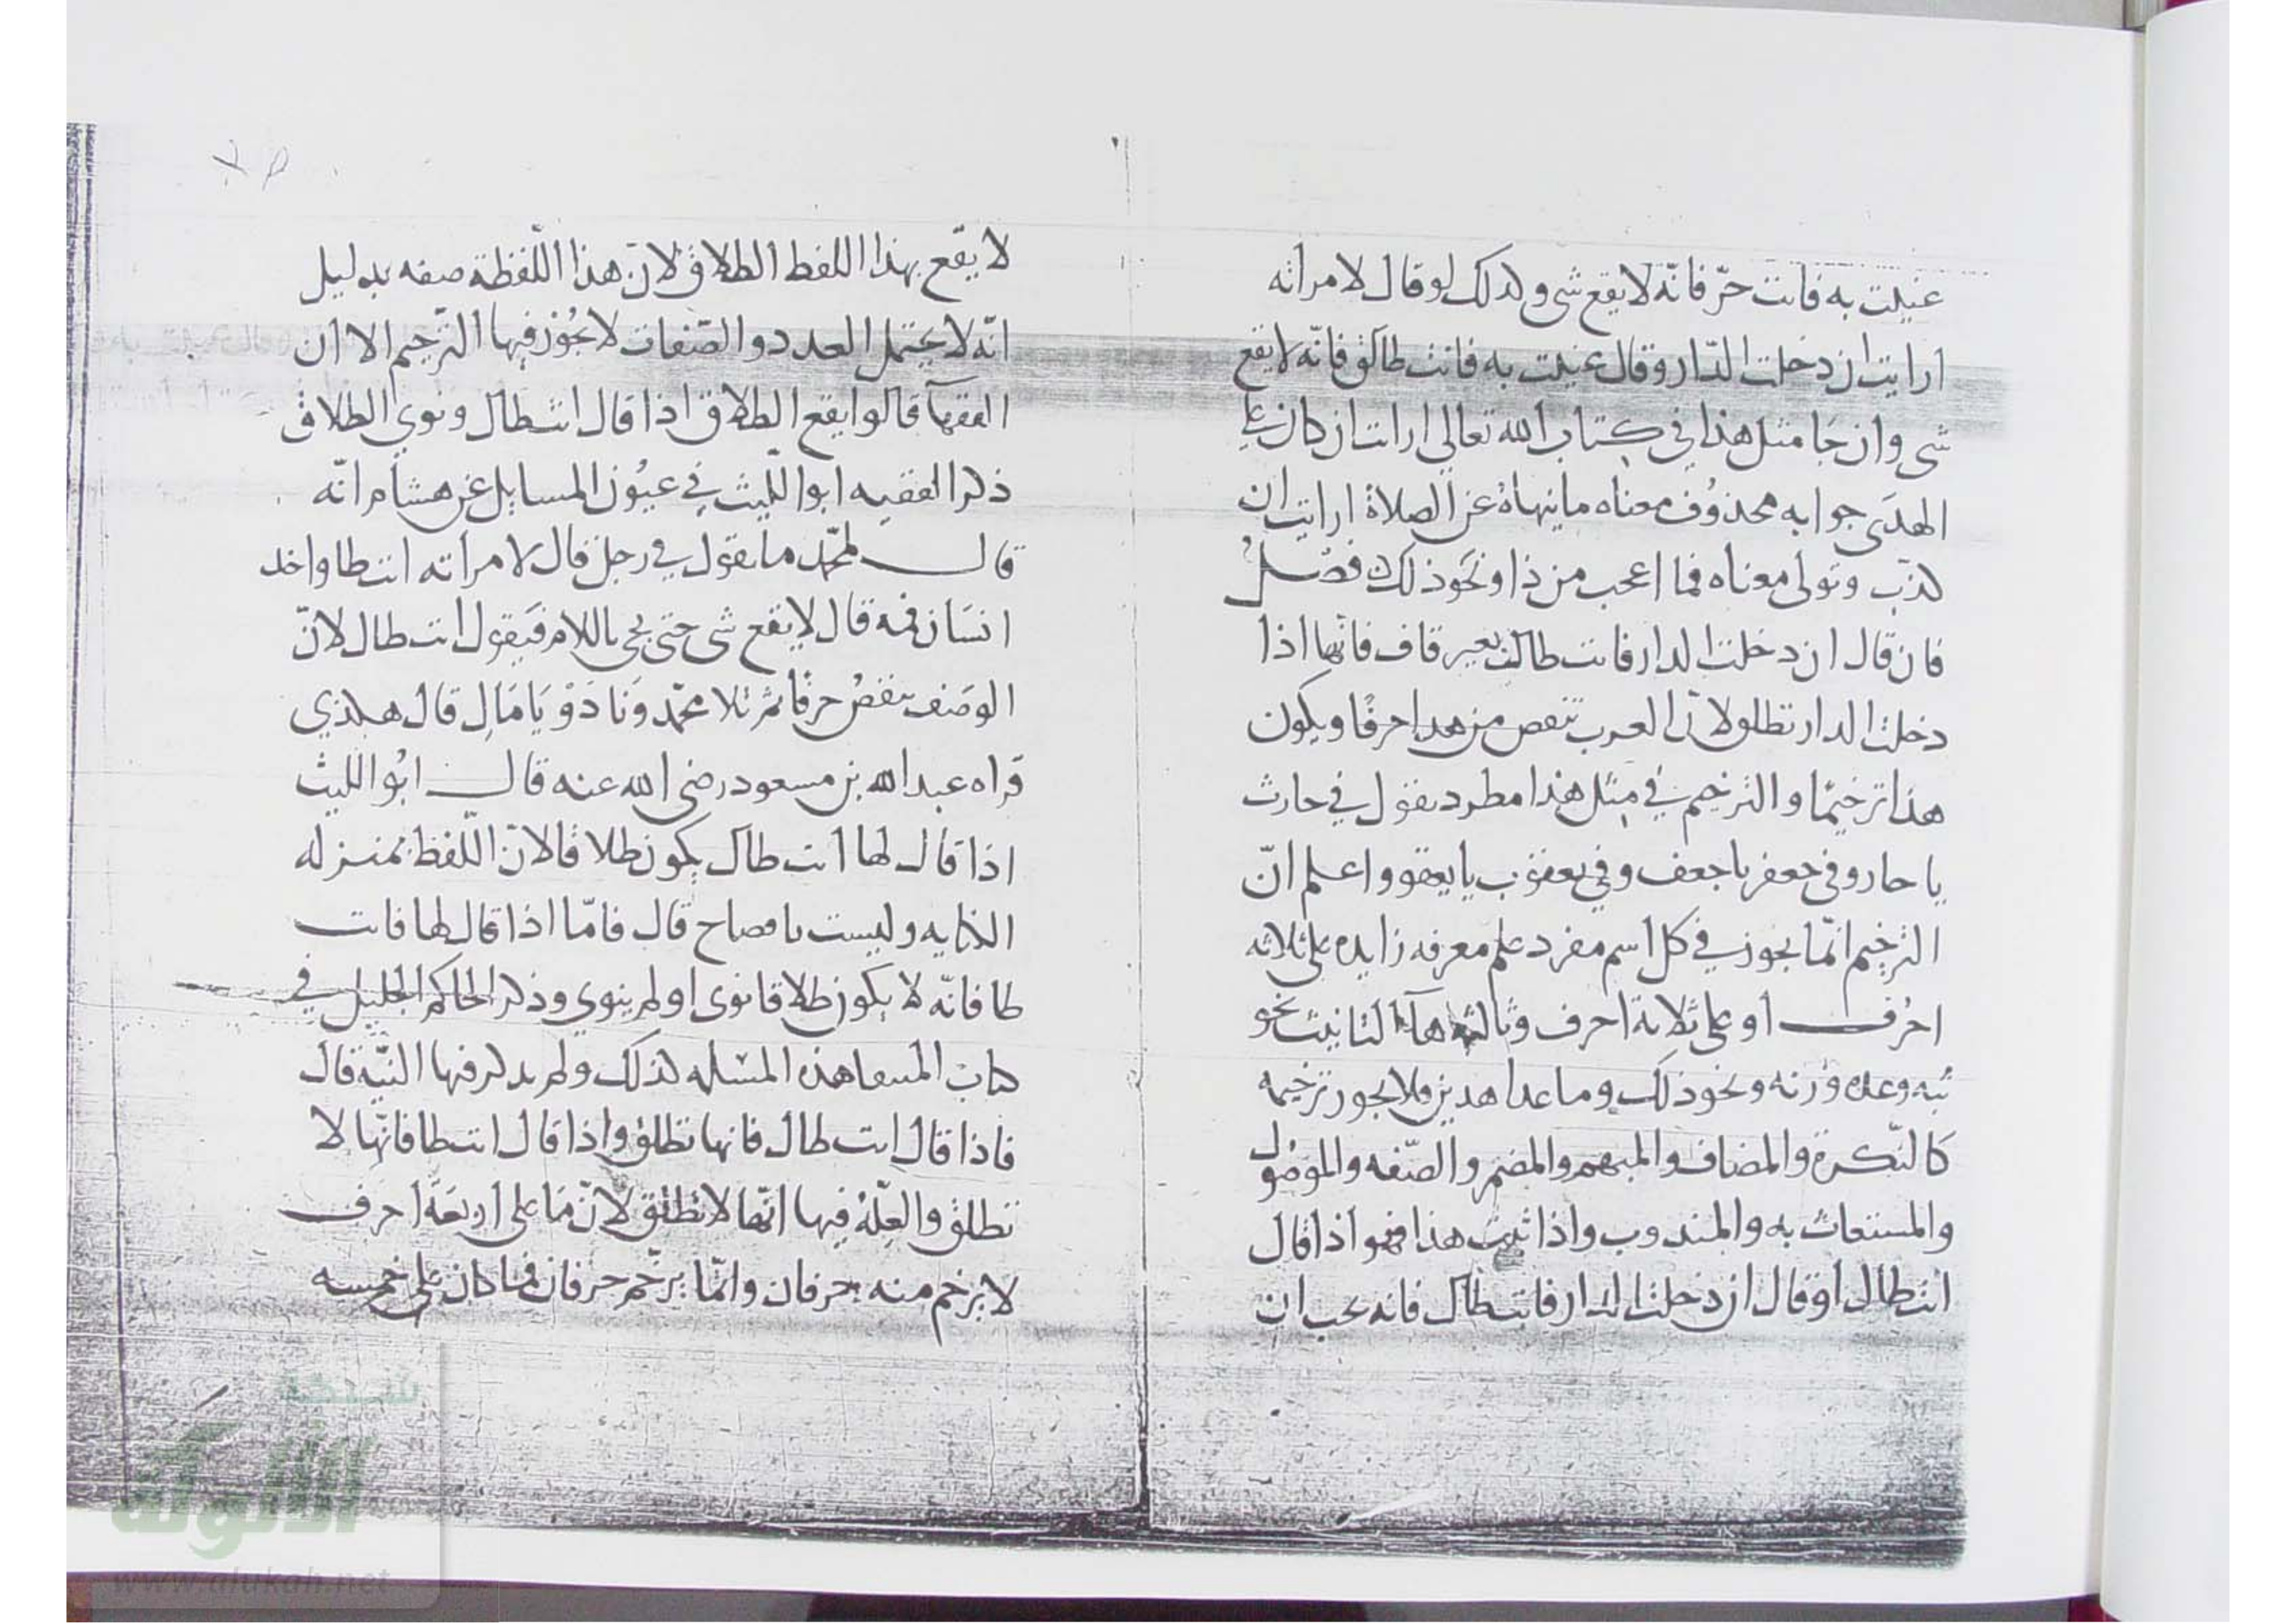 عنيت به فانت حرّ فانّه لا يقع شى وكذلك لو قال لامراته
ارايت ان دخلت الدّار وقال عنيت به فانت طالق فانّه لا يقع
شى وان جا مثل هذا في كتاب الله تعالى ارايت ان كان على
الهدى جوابه محذوف معناه ما ينهاه عن الصلاة ارايت ان
كذّب وتولى معناه فما اعجب من ذا ونحو ذلك فصل
فان قال ان دخلت الدار فانت طال بغير قاف فانها اذا
دخلت الدار تطلق لانّ العرب تنقص من هذا حرفًا ويكون
هذا ترخيمًا والترخيم في مثل هذا مطرد تقول في حارث
يا حار وفى جعفر يا جعف وفي يعقوب يا يعقو واعلم انّ
الترخيم انّما يجوز في كل اسم مفرد علم معرفه زايده على ثلاثه
احرُف او على ثلاثة احرف وثالثه هآء التانيث نحو
ثبه وعده وزنه ونحو ذلك وما عدا هذين فلا يجوز ترخيمه
كالنّكرة والمضاف والمبهم والمضمر والصّفه والموصُول
والمستغاث به والمندوب واذا ثبت هذا فهو اذا قال
انت طال او قال ان دخلت الدار فانت طال فانه يجب ان
لا يقع بهذا اللفظ الطلاق لانّ هذا اللّفظة صفه بدليل
انّه لا يحتمل العدد والصّفات لا يجُوز فيها التّرخيم الا ان
الفقهآ قالوا يقع الطلاق اذا قال انت طال ونوي الطلاق
ذكر الفقيه ابو اللّيث في عيُون المسايل عن هشام انّه
قال لمحمّد ما تقول في رجل قال لامراته انت طا واخذ
انسَان فمه قال لا يقع شى حتى يجى باللام فيَقول انت طال لانّ
الوصَف ينقصُ حرفًا ثم تلا محمّد وَنَادَوْ يَا مَالِ قال هكذي
قراه عبد الله بن مسعود رضى الله عنه قال ابُو اللّيث
اذا قال لها انت طال يكون طلاقًا لانّ اللّفظ بمنزله
الكنايه وليست بافصاح قال فامّا اذا قال لها فانت
طا فانّه لا يكون طلاقا نوى او لم ينوي وذكر الحاكم الجليل في
كتاب المنتقا هذه المسئله كذلك ولم يذكر فيها النيّة قال
فاذا قال انت طال فانها تطلق واذا قال انت طا فانّها لا
تطلق والعِلّةُ فيها انّها لا تطلق لانّ مَا على اربعَة احرف
لا يرخم منه حرفان وانّما يرخّم حرفان فيما كان على خمسه
شبكة
الألوكة
www.alukah.net